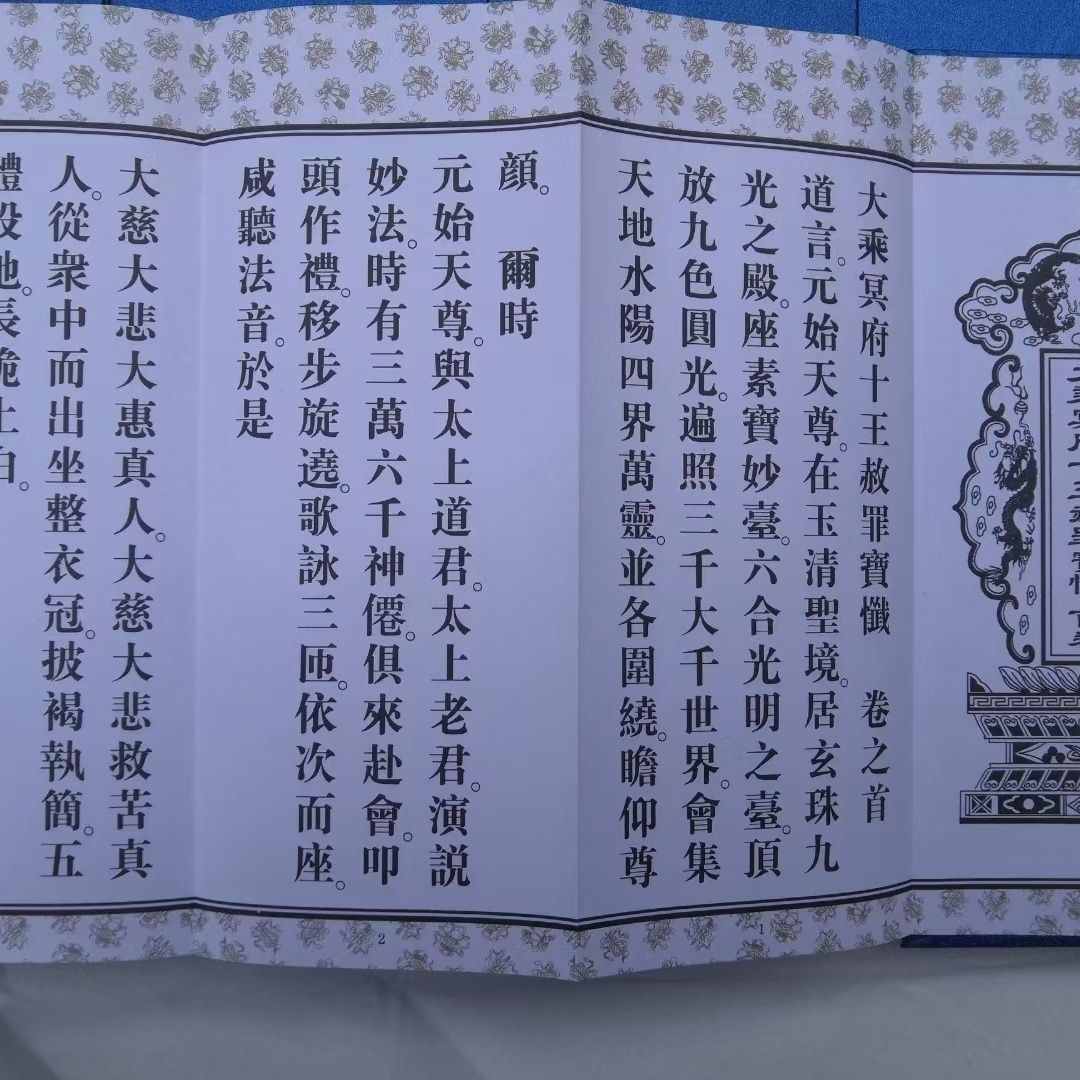 大乘冥府十王赦罪寶懺　卷之首
道言。元始天尊。在玉清聖境。居玄珠九
光之殿。座素寶妙臺。六合光明之臺。頂
放九色圓光。遍照三千大千世界。會集
天地水陽四界萬靈。並各圍繞。瞻仰尊
1
顔。　爾時
元始天尊。與太上道君。太上老君。演説
妙法。時有三萬六千神僊。俱來赴會。叩
頭作禮。移步旋遶。歌詠三匝。依次而座。
咸聽法音。於是
2
大慈大悲大惠真人。大慈大悲救苦真
人。從衆中而出坐整衣冠。披褐執簡。五
地。長跪上白。